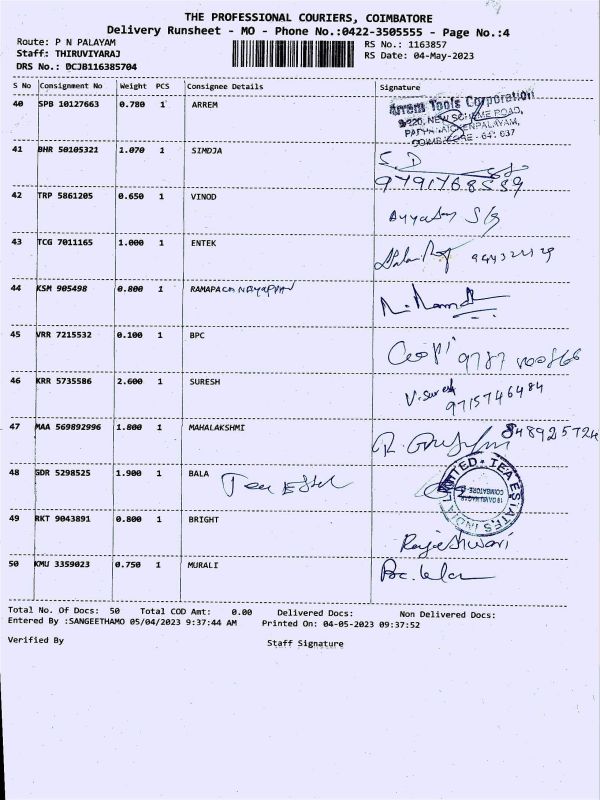 THE PROFESSIONAL COURIERS, COIMBATORE
Delivery Runsheet - MO - Phone No.:0422-3505555 - Page No.:4
Route: P N PALAYAM
Staff: THIRUVIYARAJ
DRS No.: DCJB116385704
RS No.: 1163857
RS Date: 04-May-2023
S No Consignment No Weight PCS Consignee Details Signature
40 SPB 10127663 0.780 1 ARREM
Arrem Tools Corporation
9/220, NEW SCHEME ROAD,
COIMBATORE - 641 037
41 BHR 50105321 1.070 1 SIMDJA
S. D
9791768559
42 TRP 5861205 0.650 1 VINOD
43 TCG 7011165 1.000 1 ENTEK
44 KSM 905498 0.800 1 RAMAPACH
45 VRR 7215532 0.100 1 BPC
Gopi 9787 700866
46 KRR 5735586 2.600 1 SURESH
V. Suresh
9715746484
47 MAA 569892996 1.800 1 MAHALAKSHMI
848925724
48 GDR 5298525 1.900 1 BALA
Tea Estet
TEA ESTATES INDIA LIMITED
COIMBATORE
49 RKT 9043891 0.800 1 BRIGHT
Rajeshwari
50 KMU 3359023 0.750 1 MURALI
Total No. Of Docs: 50 Total COD Amt: 0.00 Delivered Docs: Non Delivered Docs:
Entered By :SANGEETHAMO 05/04/2023 9:37:44 AM Printed On: 04-05-2023 09:37:52
Verified By Staff Signature